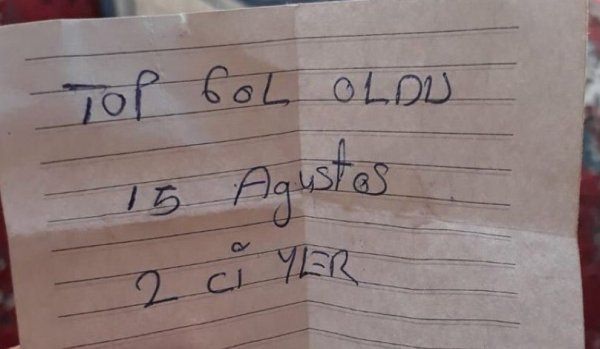 TOP GOL OLDU
15 Agustos
2 Cİ YLER